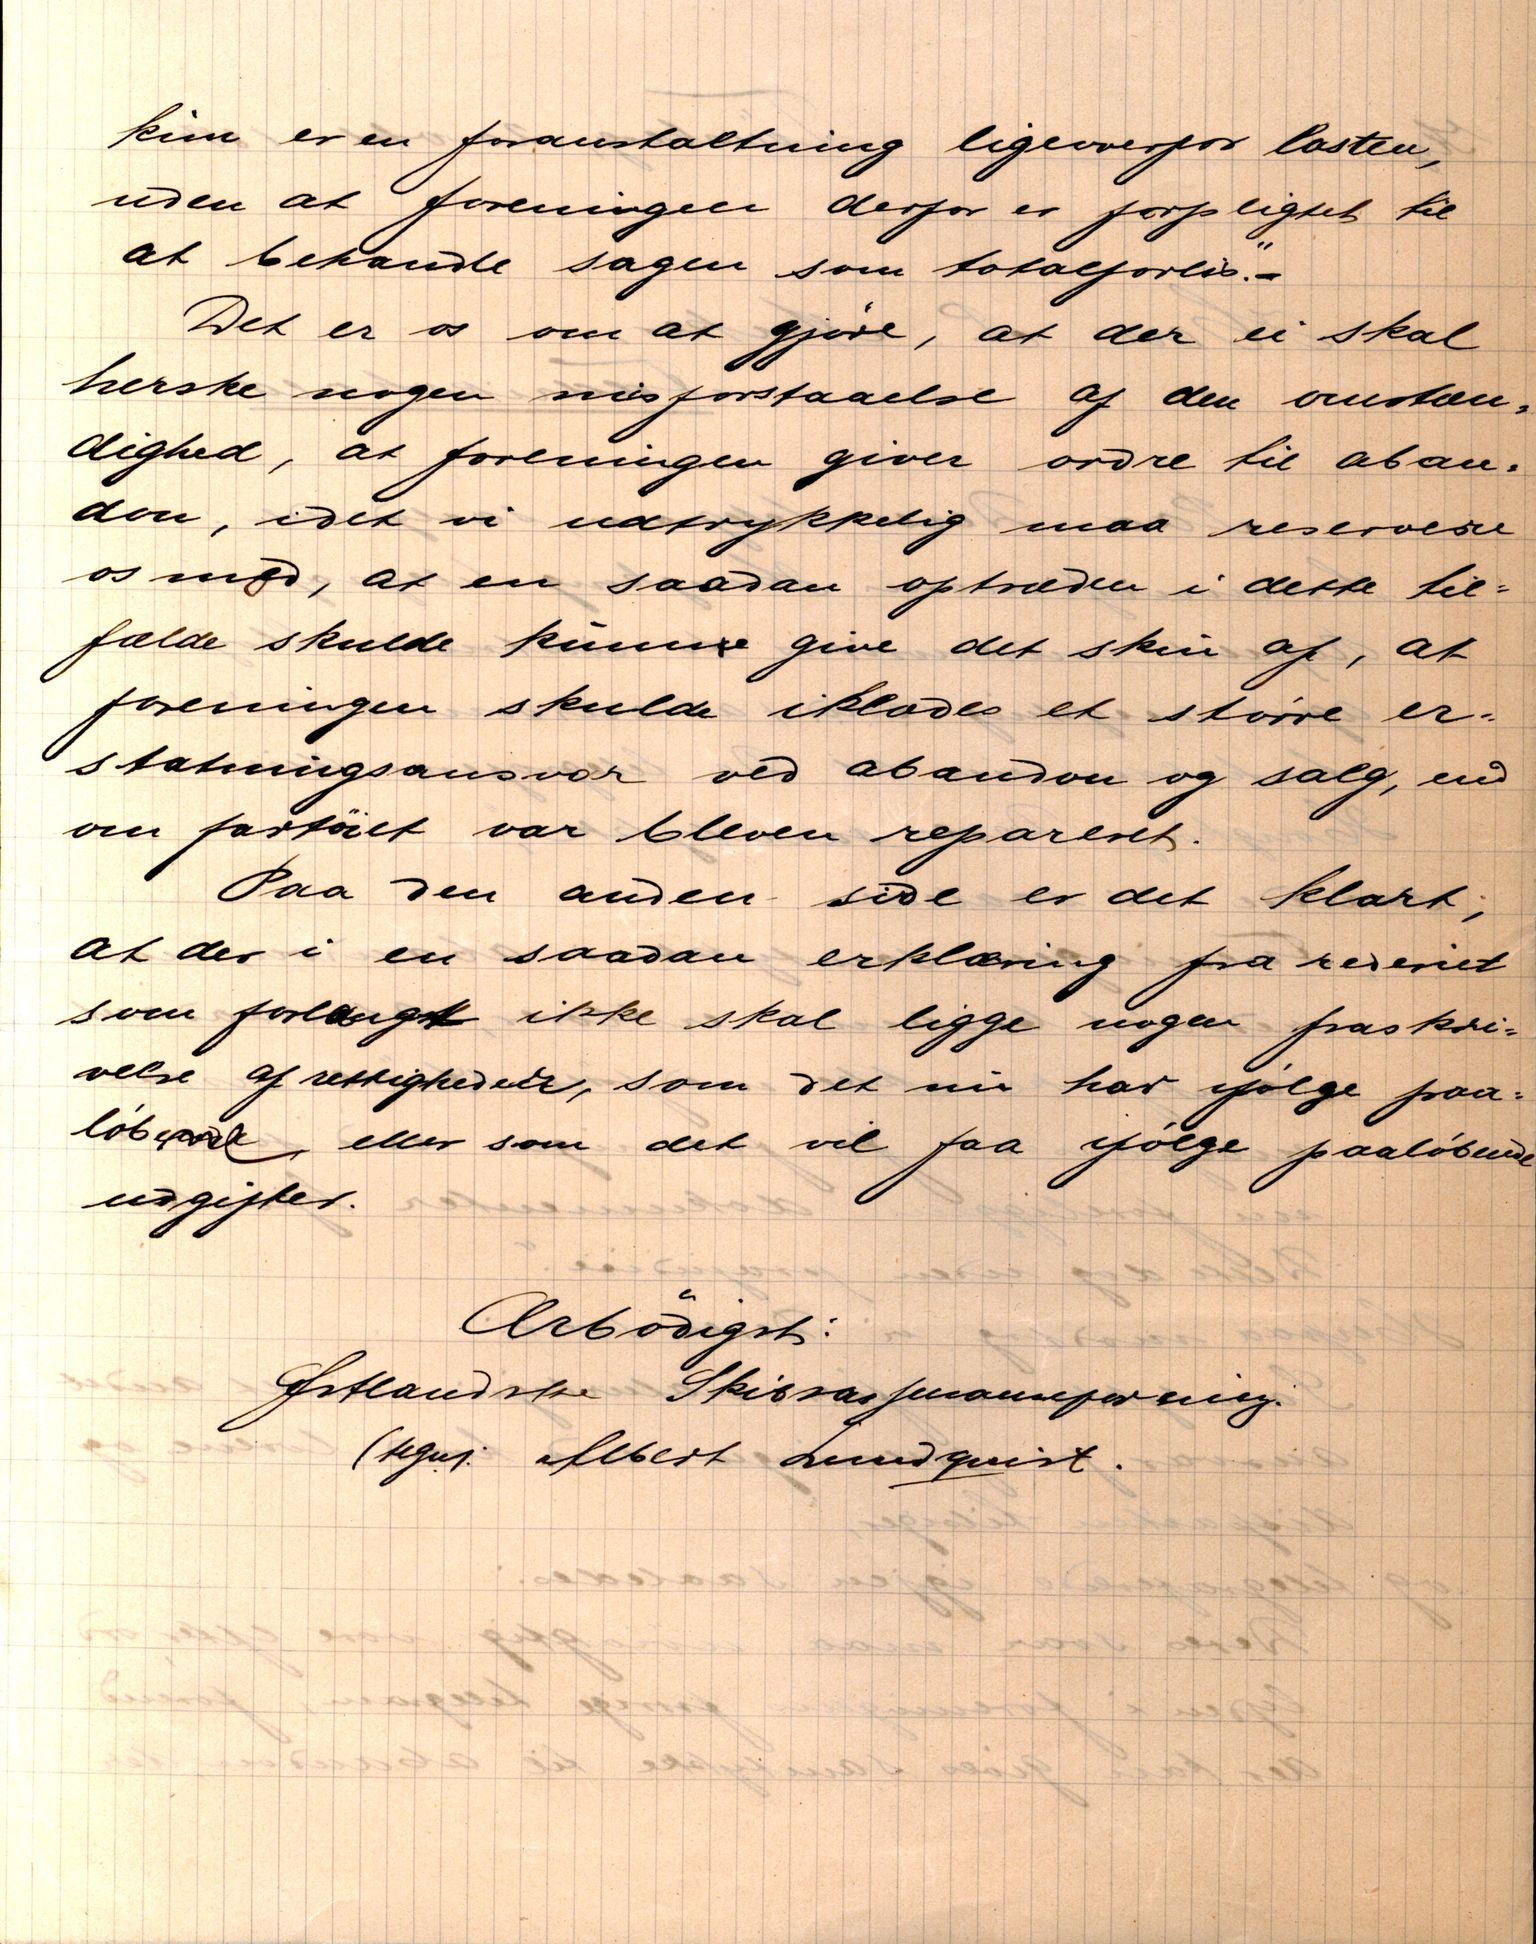 kun er en foranstaltning ligeoverfor lasten,
uden at foreningen derfor er forpligtet til
at behandle sagen som totalforlis".-
Det er os om at gjøre, at der ei skal
herske nogen misforstaaelse af den omstæn-
dighed, at foreningen giver ordre til aban-
don, idet vi udtrykkelig maa reservere
os mod, at en saadan optræden i dette til-
fælde skulde kunne give det skin af, at
foreningen skulde iklædes et større er-
statningsansvar ved abandon og salg, end
om fartöiet var bleven repareret.
Paa den anden side er det klart,
at der i en saadan erklæring fra rederiet
som forlangt ikke skal ligge nogen fraskri-
velse af rettigheder, som det nu har ifølge paa-
løbende, eller som det vil faa ifølge paaløbende
udgifter.
Ærbödigst:
Østlandske Skibsassuranceforening.
(tegn). Albert Lundquist.